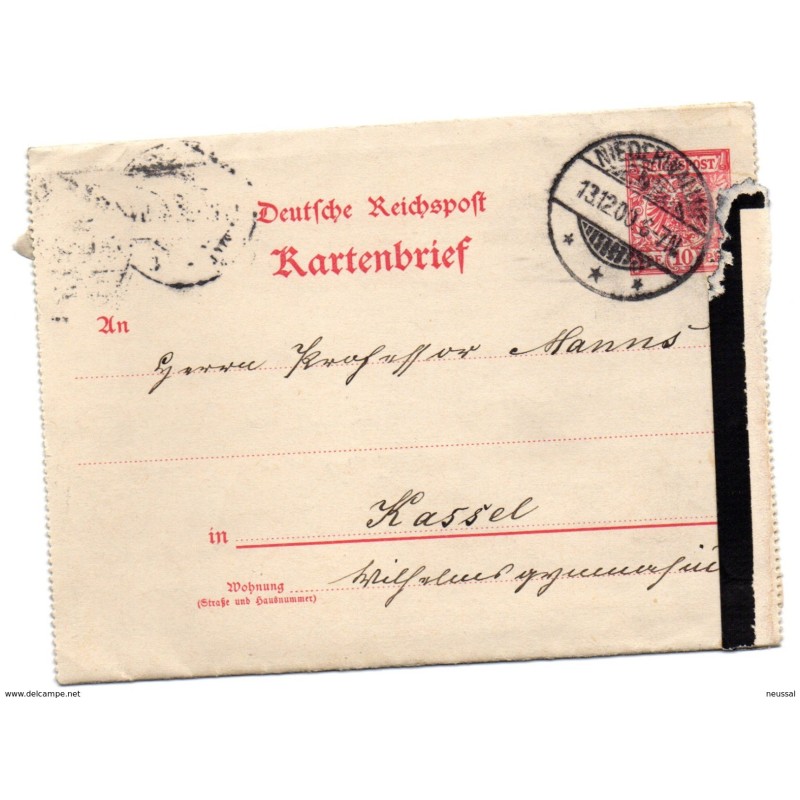 REICHSPOST
10
13.12.00. 6-7N.
Deutsche Reichspost
Kartenbrief
An
Herrn Professor Manns
in Kassel
Wohnung
(Straße und Hausnummer)
Wilhelmsgymnasiu
www.delcampe.net
neussal